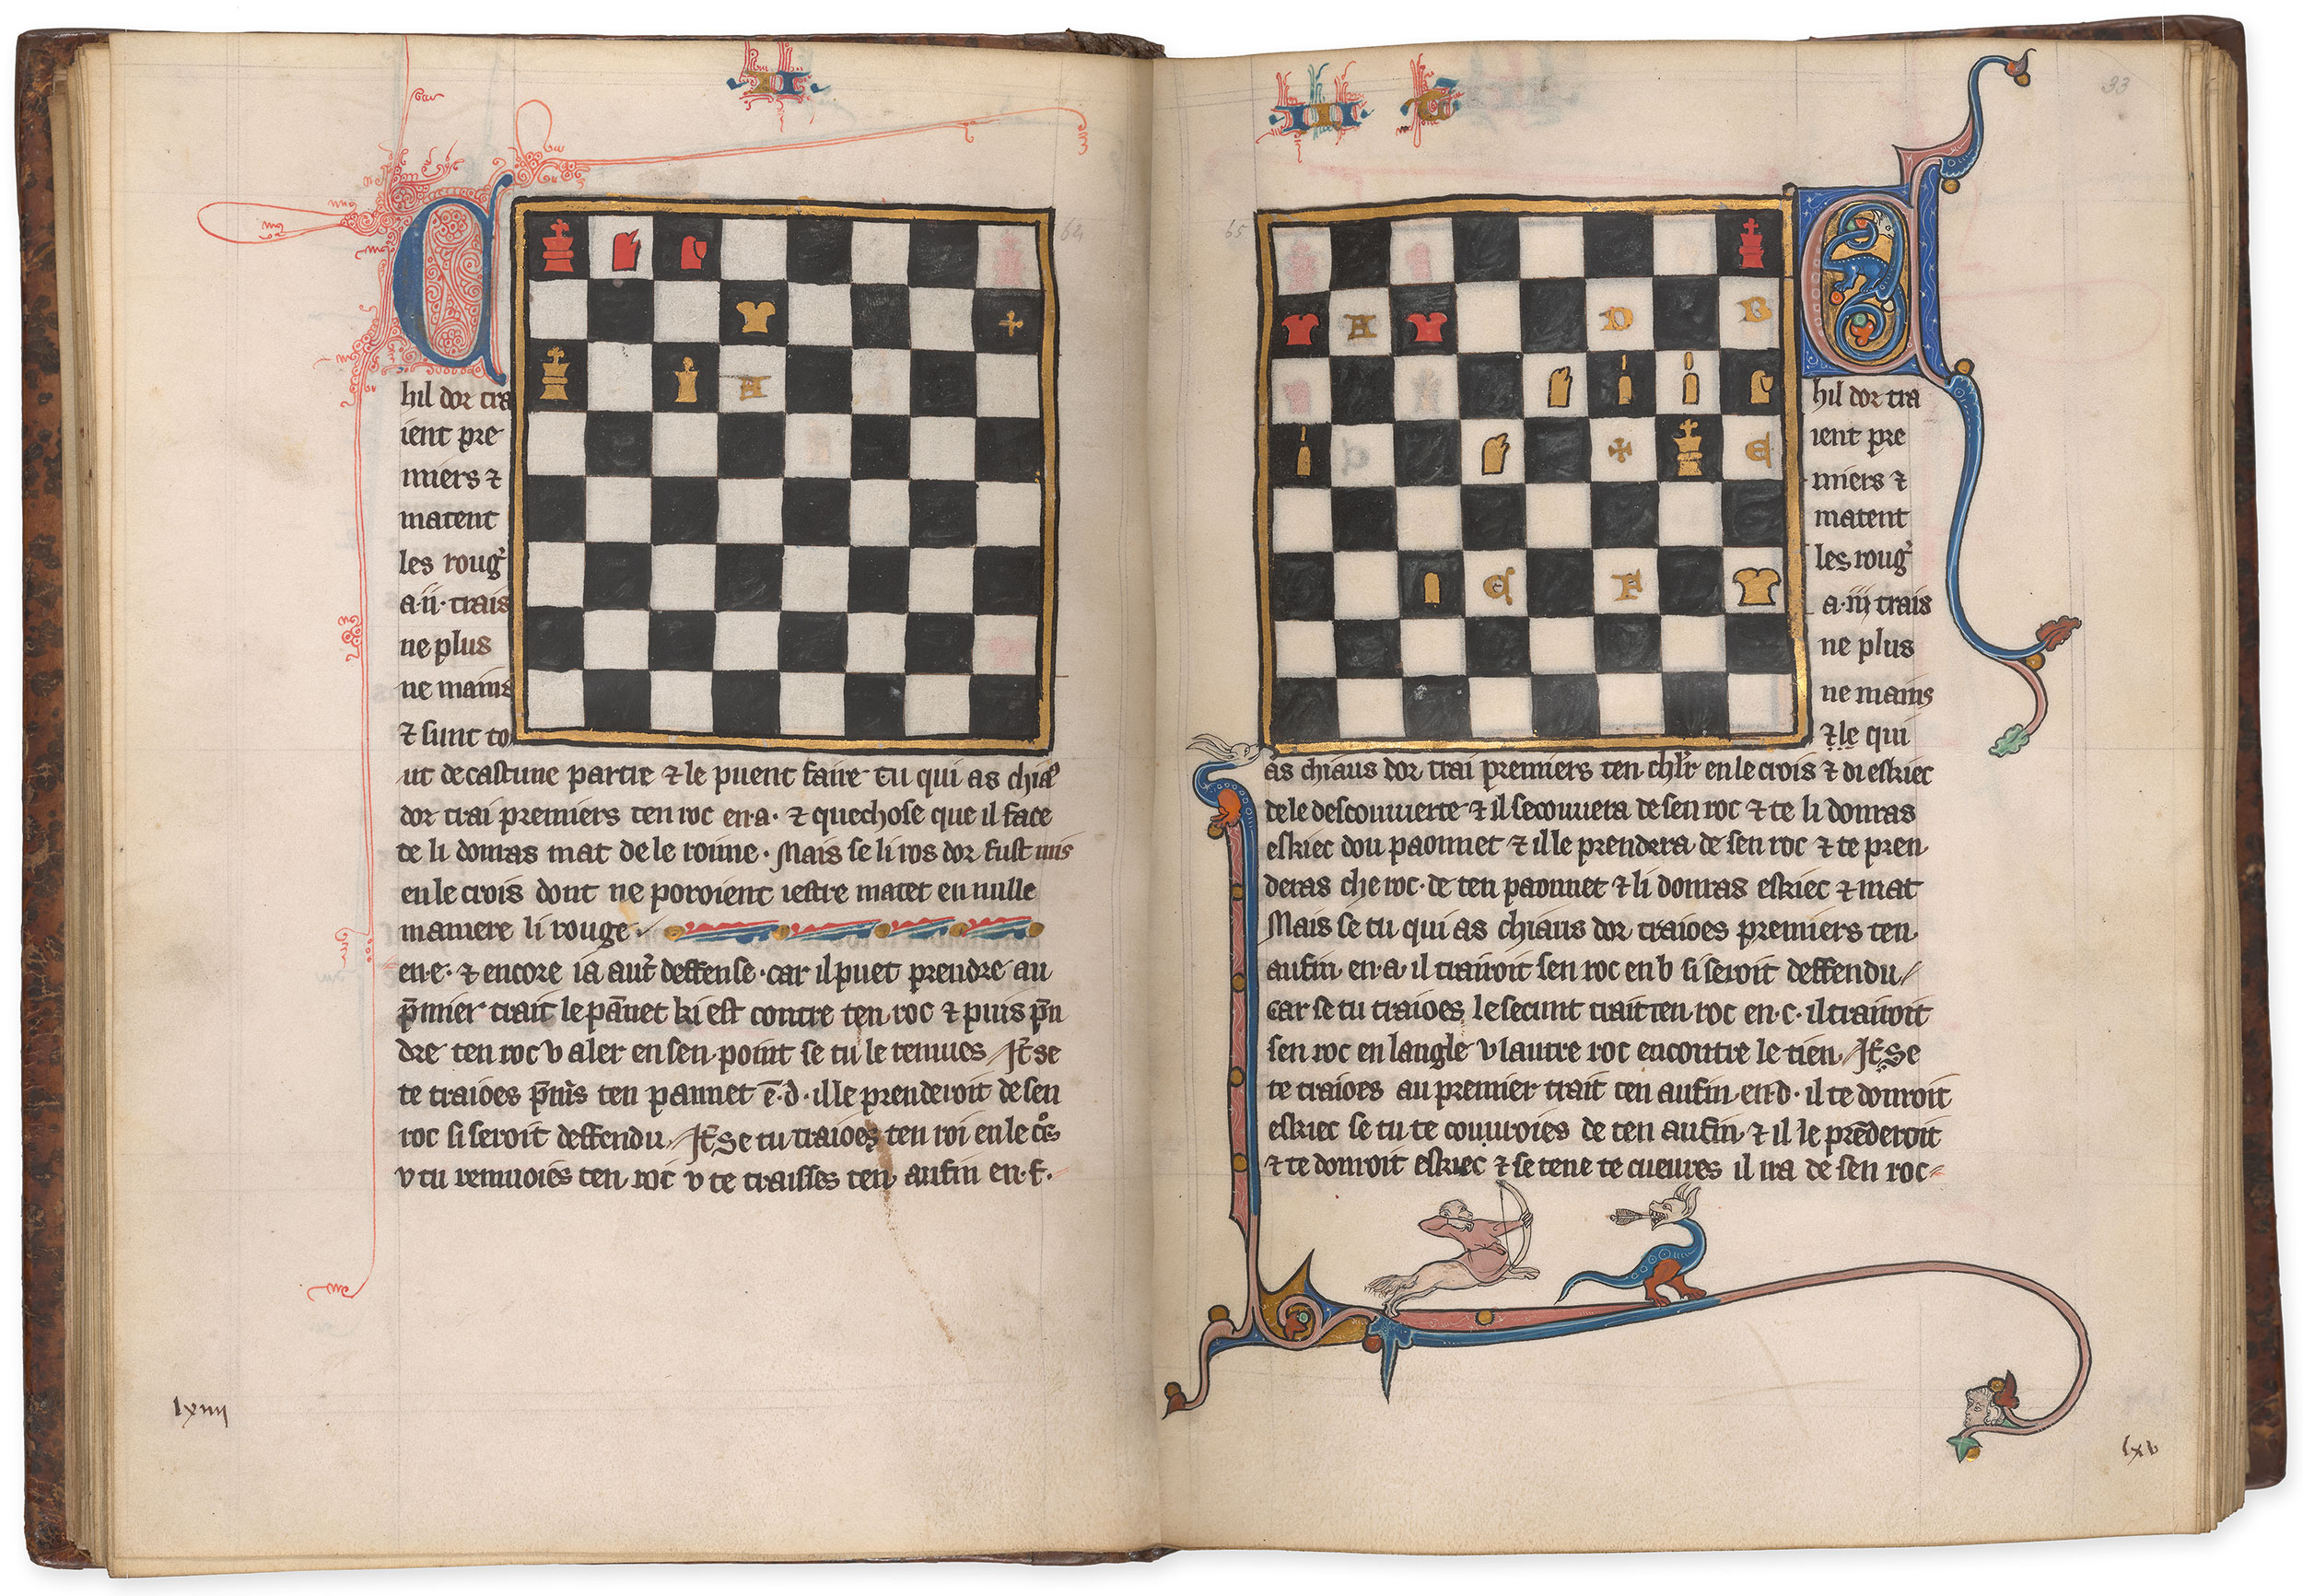 .II.
64
Chil dor tra
ient pre
miers ⁊
matent
les roug᾽
a·ii· trais
ne plus
ne mains
⁊ sunt to
ut de castune partie ⁊ le puent faire tu qui as chia᾽
dor trai premiers ten roc en·a· ⁊ quechose que il face
te li donras mat de le roiine· Mais se li rois dor fust mis
en le crois dont ne poroient iestre matet en nulle
maniere li rouge·
en·e· ⁊ encore ia aut᾽ deffense·car il puet prendre au
p̄mier trait le pāuet ki est contre ten roc ⁊ puis p̄n
dre ten roc v aler en sen point se tu le remues It̄ se
te traioes p̄m᾽s ten paunet ē·d· il le prenderoit de sen
roc si seroit deffendu It̄ Se tu traioes ten roi en le c᾽s
v tu remuoies ten roc v te traisses ten aufin en·f·
lxiiii
A
III C
33
65
Chil dor tra
ient pre
miers ⁊
matent
les roug᾽
a·iii trais
ne plus
ne mains
⁊ le qui
as chiaus dor trai premiers ten chl᾽r en le crois ⁊ di eskiec
de le descouuerte ⁊ il se couuera de sen roc ⁊ te li donras
eskiec dou paonnet ⁊ il le prendera de sen roc ⁊ te pren
deras che roc·de ten paonnet ⁊ li donras eskiec ⁊ mat
Mais se tu qui as chiaus dor traioes premiers ten
aufin en·a· il trairoit sen roc en b si seroit deffendu
car se tu traioes le secunt trait ten roc en·c· il trairoit
sen roc en langle v lautre roc encontre le tien It̄ Se
te traioes au premier trait ten aufin en·d· il te donroit
eskiec se tu te couuroies de ten aufin ⁊ il le prēderoit
⁊ te donroit eskiec ⁊ se te ne te cueures il ira de sen roc
A D B
C E
G F
lxv